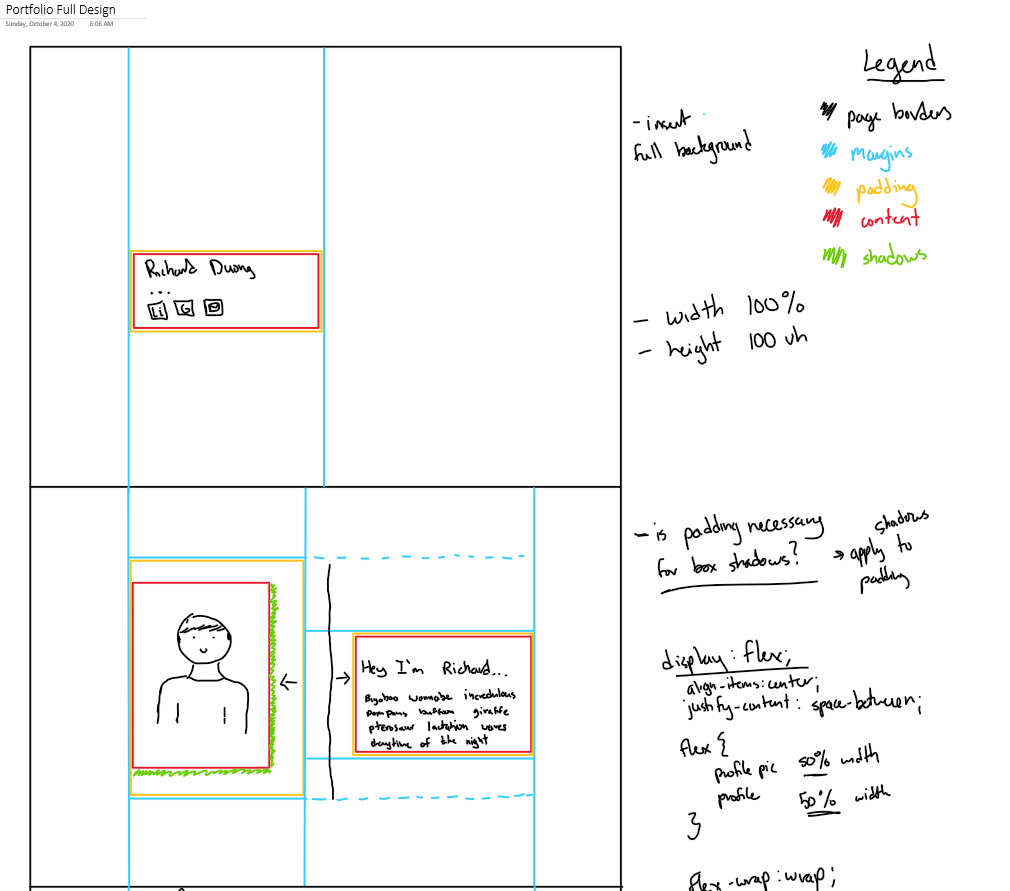 Portfolio Full Design
Sunday, October 4, 2020 6:06 AM
Legend
page borders
margins
padding
content
shadows
- insert
full background
Richard Duong
...
Li G
- width 100%
- height 100 vh
- is padding necessary
for box shadows?
→ shadows
apply to
padding
Hey I'm Richard...
Bigaboo wannabe incredulous
pompons buffoon giraffe
pterosaur lactation waves
daytime of the night
display: flex;
align-items: center;
justify-content: space-between;
flex {
profile pic 50% width
profile 50% width
}
flex-wrap: wrap;